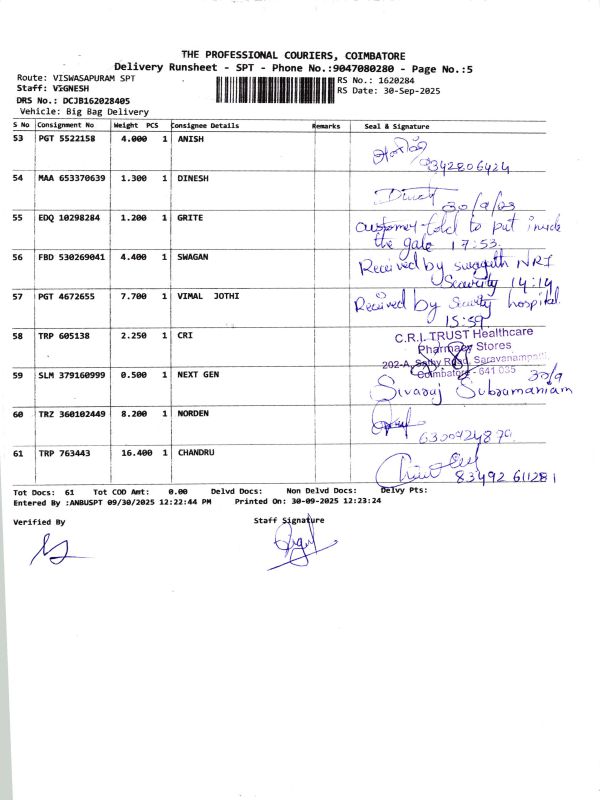 THE PROFESSIONAL COURIERS, COIMBATORE
Delivery Runsheet - SPT - Phone No.:9047080280 - Page No.:5
Route: VISWASAPURAM SPT
Staff: VIGNESH
DRS No.: DCJB162028405
Vehicle: Big Bag Delivery
RS No.: 1620284
RS Date: 30-Sep-2025
S No Consignment No Weight PCS Consignee Details Remarks Seal & Signature
53 PGT 5522158 4.000 1 ANISH
9342806424
54 MAA 653370639 1.300 1 DINESH
Dinesh
55 EDQ 10298284 1.200 1 GRITE
customer told to put inside
the gate 17:53.
56 FBD 530269041 4.400 1 SWAGAN
Received by swagath NRI
Security 14:14
57 PGT 4672655 7.700 1 VIMAL JOTHI
Received by Security hospital.
15:59
58 TRP 605138 2.250 1 CRI
C.R.I. TRUST Healthcare
Pharmacy Stores
202-A, Sathy Road, Saravanampatti,
Coimbatore - 641 035
59 SLM 379160999 0.500 1 NEXT GEN
30/9
Sivaraj Subramaniam
60 TRZ 360102449 8.200 1 NORDEN
61 TRP 763443 16.400 1 CHANDRU
83492 611281
Tot Docs: 61 Tot COD Amt: 0.00 Delvd Docs: Non Delvd Docs: Delvy Pts:
Entered By :ANBUSPT 09/30/2025 12:22:44 PM Printed On: 30-09-2025 12:23:24
Verified By
Staff Signature